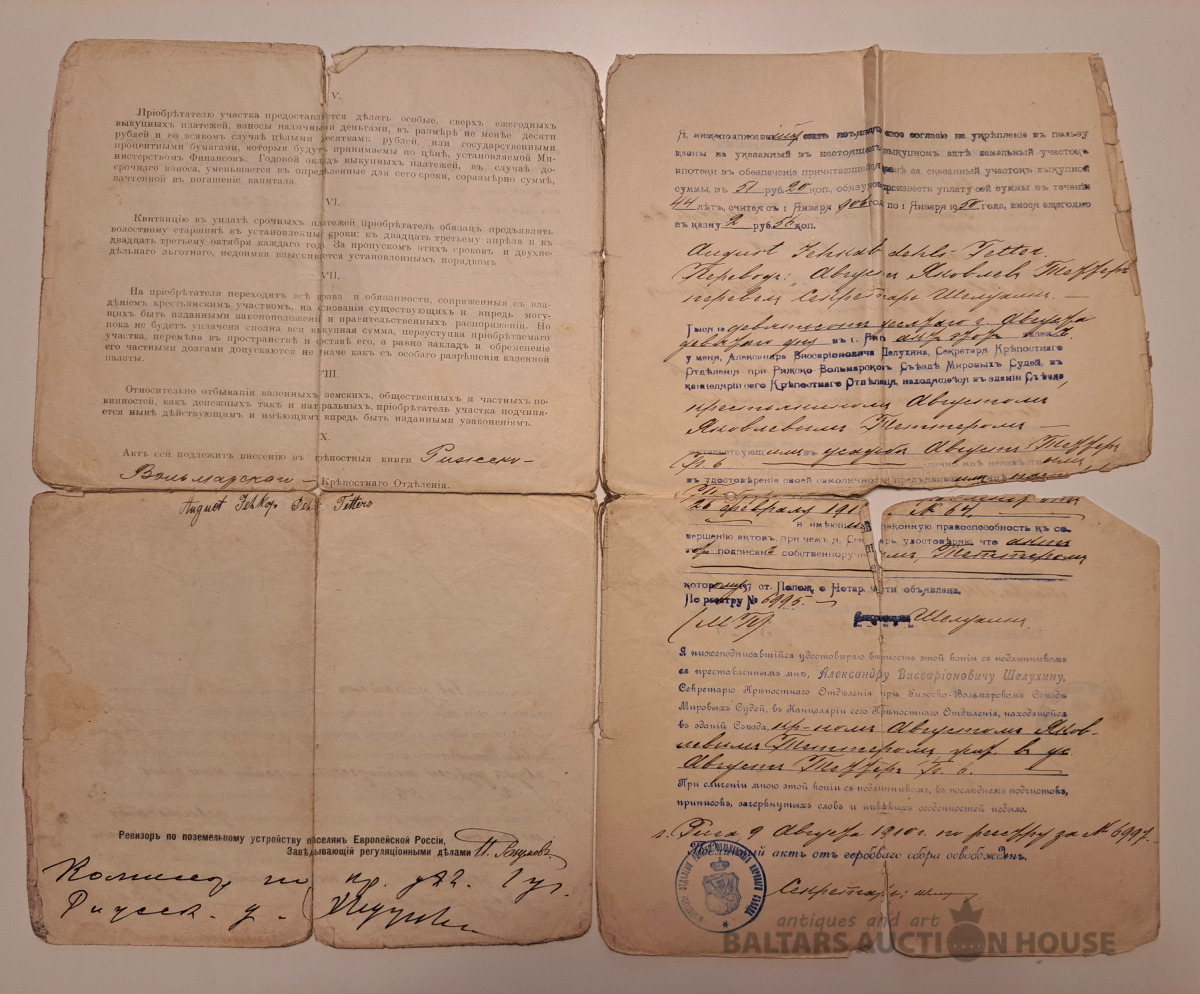 V.
Пріобрѣтателю участка предоставляется дѣлать особые, сверхъ ежегодныхъ
выкупныхъ платежей, взносы наличными деньгами, въ размѣрѣ не менѣе десяти
рублей и во всякомъ случаѣ цѣлыми десятками рублей, или государственными
процентными бумагами, которыя будутъ принимаемы по цѣнѣ, установляемой Ми-
нистерствомъ Финансовъ. Годовой окладъ выкупныхъ платежей, въ случаѣ до-
срочнаго взноса, уменьшается въ опредѣленные для сего сроки, соразмѣрно суммѣ,
зачтенной въ погашеніе капитала.
VI.
Квитанцію въ уплатѣ срочныхъ платежей пріобрѣтатель обязанъ предъявлять
волостному старшинѣ въ установленные сроки: къ двадцать третьему апрѣля и къ
двадцать третьему октября каждаго года. За пропускомъ этихъ сроковъ и двухне-
дѣльнаго льготнаго, недоимка взыскивается установленнымъ порядкомъ.
VII.
На пріобрѣтателя переходятъ всѣ права и обязанности, сопряженныя съ вла-
дѣніемъ крестьянскимъ участкомъ, на основаніи существующихъ и впредь могу-
щихъ быть изданными законоположеній и правительственныхъ распоряженій. Но
пока не будетъ уплачена сполна вся выкупная сумма, переуступка пріобрѣтаемаго
участка, перемѣна въ пространствѣ и составѣ его, а равно закладъ и обремененіе
его частными долгами допускаются не иначе какъ съ особаго разрѣшенія казенной
палаты.
VIII.
Относительно отбыванія казенныхъ земскихъ, общественныхъ и частныхъ по-
винностей, какъ денежныхъ такъ и натуральныхъ, пріобрѣтатель участка подчиня-
ется нынѣ дѣйствующимъ и имѣющимъ впредь быть изданными узаконеніямъ.
X.
Актъ сей подлежитъ внесенію въ крѣпостныя книги Рижско-
Вольмарскаго Крѣпостнаго Отдѣленія.
August Jehkop Tetters
Ревизоръ по поземельному устройству поселянъ Европейской Россіи,
Завѣдывающій регуляціонными дѣлами
Рижск. у.
Я, нижеподписавшійся изъявляю свое согласіе на укрѣпленіе въ пользу
казны на указанный въ настоящемъ выкупномъ актѣ земельный участокъ
ипотеки въ обезпеченіе причитающейся казнѣ за сказанный участокъ выкупной
суммы, въ 51 руб. 20 коп., обязуюсь произвести уплату сей суммы въ теченіи
44 лѣтъ, считая съ 1 Января 1906 года по 1 Января 1950 года, внося ежегодно
въ казну 2 руб. 56 коп.
August Jehkab
Переводъ: Августъ Яковлевъ Тетферъ
перевелъ Секретарь Шелухинъ. —
девятисотъ десятаго г. Августа
девятаго дня въ г. Ригѣ
у меня, Александра Виссаріоновича Шелухина, Секретаря Крѣпостнаго
Отдѣленія при Рижско Вольмарскомъ Съѣздѣ Мировыхъ Судей, въ
канцеляріи сего Крѣпостнаго Отдѣленія, находящейся въ зданіи Съѣзда
крестьяниномъ Августомъ
Яковлевымъ Теттеромъ —
усадьба Августъ Тетферъ
№ 6
въ удостовѣреніе своей самоличности
26 Февраля 191 № 64.
и имѣющимъ законную правоспособность къ со-
вершенію актовъ, при чемъ я, Секретарь, удостовѣряю что
подписанъ собственноручно Теттеромъ
которому 157 ст. Полож. о Нотар. части объявлена.
По реестру № 6995. —
(М. П.) Шелухинъ.
Я нижеподписавшійся удостовѣряю вѣрность этой копіи съ подлинникомъ
ея преставленнымъ мнѣ, Александру Виссаріоновичу Шелухину,
Секретарю Крѣпостнаго Отдѣленія при Рижско-Вольмарскомъ Съѣздѣ
Мировыхъ Судей, въ Канцеляріи сего Крѣпостнаго Отдѣленія, находящейся
въ зданіи Съѣзда, кр-номъ Августомъ Яков-
левымъ Теттеромъ въ ус
Августъ Тетферъ № 6.
При сличеніи мною этой копіи съ подлинникомъ, въ послѣднемъ подчистокъ,
приписокъ, зачеркнутыхъ словъ и никакихъ особенностей небыло.
г. Рига 9 Августа 1910 г. по реестру за № 6997.
актъ отъ гербоваго сбора освобожденъ.
Секретарь:
antiques and art
BALTARS AUCTION HOUSE